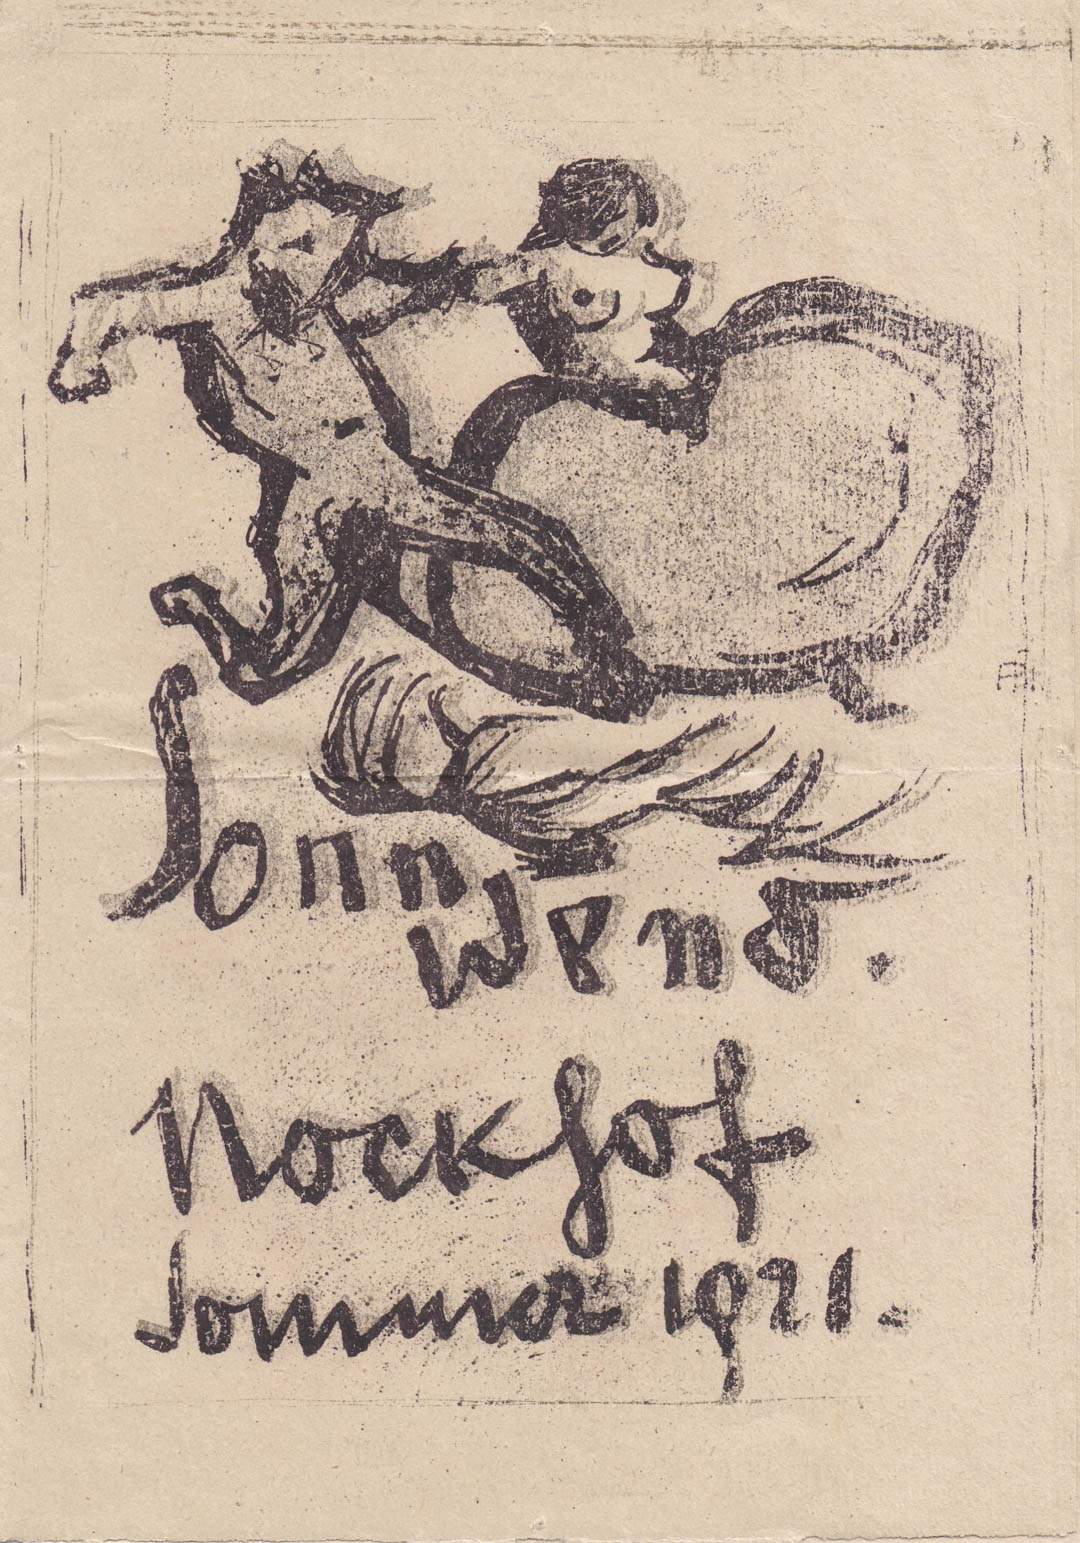 Sonn
Wend.
Nockhof
Sommer 1921.